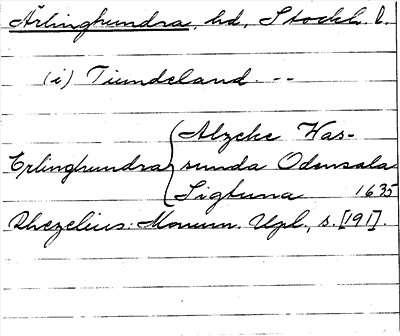 Ärlinghundra, hd, Stockh. l.
(i) Tiundeland. --
Alzeke Has-
Erlinghundra sunda Odensala
Sigtuna 1635
Rhezelius: Monum. Upl., s. [191].